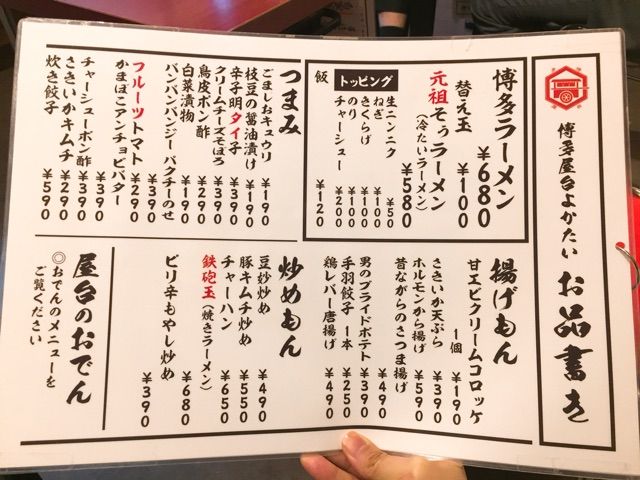 博多屋台よかたい お品書き
博多ラーメン ¥680
替え玉 ¥100
元祖そぅラーメン (冷たいラーメン) ¥580
トッピング
生ニンニク ¥50
ねぎ ¥100
きくらげ ¥100
のり ¥100
チャーシュー ¥200
飯 ¥120
つまみ
ごましおキュウリ ¥190
枝豆の醤油漬け ¥190
辛子明タイ子 ¥390
クリームチーズそぼろ ¥290
鳥皮ポン酢 ¥390
白菜漬物 ¥190
バンバンバンジー パクチーのせ ¥390
フルーツトマト ¥290
かまぼこアンチョビバター ¥390
チャーシューポン酢 ¥390
さきいかキムチ ¥290
炊き餃子 ¥590
揚げもん
甘エビクリームコロッケ 1個 ¥190
さきいか天ぷら ¥390
ホルモンから揚げ ¥590
昔ながらのさつま揚げ ¥490
男のプライドポテト ¥390
手羽餃子 1本 ¥250
鶏レバー唐揚げ ¥490
炒めもん
豆妙炒め ¥490
豚キムチ炒め ¥550
チャーハン ¥650
鉄砲玉(焼きラーメン) ¥680
ピリ辛もやし炒め ¥390
屋台のおでん
◎おでんのメニューを
ご覧ください